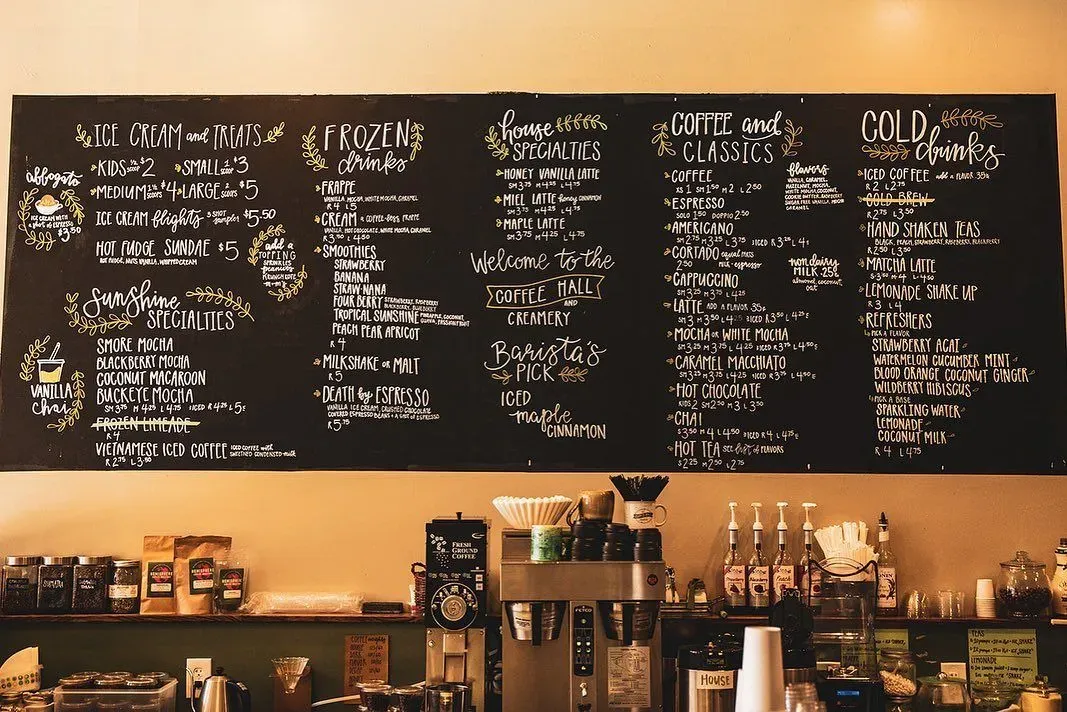 ICE CREAM and TREATS
KIDS 1/2 SCOOPS $2 SMALL 1 SCOOPS $3
MEDIUM 1 1/2 SCOOPS $4 LARGE 2 SCOOPS $5
ICE CREAM flights 3 SHOT sampler $5.50
HOT FUDGE SUNDAE $5
HOT FUDGE, NUTS, VANILLA, WHIPPED CREAM
affogato
ICE CREAM with
a shot of ESPRESSO
$3.50
add a
TOPPING
SPRINKLES
peanuts
m+m's
Sunshine
SPECIALTIES
SMORE MOCHA
BLACKBERRY MOCHA
COCONUT MACAROON
BUCKEYE MOCHA
SM 3.75 M 4.25 L 4.75 ICED R 4.25 L 5
FROZEN LIMEADE
R 4
VIETNAMESE ICED COFFEE ICED COFFEE with
SWEETENED CONDENSED milk
R 2.75 L 3.50
VANILLA
chai
FROZEN
drinks
FRAPPE
VANILLA, MOCHA, WHITE MOCHA, CARAMEL
R 4 L 5
CREAM a COFFEE-less FRAPPE
VANILLA, HOT CHOCOLATE, WHITE MOCHA, CARAMEL
R 3.50 L 4.50
SMOOTHIES
STRAWBERRY
BANANA
STRAW NANA
FOUR BERRY STRAWBERRY, RASPBERRY
BLACKBERRY, BLUEBERRY
TROPICAL SUNSHINE PINEAPPLE, COCONUT,
GUAVA, PASSIONFRUIT
PEACH PEAR APRICOT
R 4
MILKSHAKE or MALT
R 5
DEATH by ESPRESSO
VANILLA ICE CREAM, CRUSHED CHOCOLATE
COVERED ESPRESSO BEANS + A SHOT of ESPRESSO
R 5.75
house
SPECIALTIES
HONEY VANILLA LATTE
SM 3.75 M 4.25 L 4.75
MIEL LATTE honey cinnamon
SM 3.75 M 4.25 L 4.75
MAPLE LATTE
SM 3.75 M 4.25 L 4.75
Welcome to the
COFFEE HALL
AND
CREAMERY
Barista's
PICK
ICED
maple
CINNAMON
COFFEE and
CLASSICS
COFFEE
XS 1 SM 1.50 M 2 L 2.50
ESPRESSO
SOLO 1.50 DOPPIO 2.50
AMERICANO
SM 2.75 M 3.25 L 3.75 ICED R 3.25 L 4
CORTADO equal parts
2.50 milk + espresso
CAPPUCCINO
SM 2.75 M 3.75 L 4.25
LATTE ADD A FLAVOR 35¢
SM 3 M 3.50 L 4.25 ICED R 3.50 L 4.25
MOCHA or WHITE MOCHA
SM 3.25 M 3.75 L 4.25 ICED R 3.75 L 4.50
CARAMEL MACCHIATO
SM 3.25 M 3.75 L 4.25 ICED R 3.75 L 4.50
HOT CHOCOLATE
KIDS 2 SM 2.50 M 3 L 3.50
CHAI
SM 3.50 M 4 L 4.50 ICED R 4 L 4.75
HOT TEA SEE list of FLAVORS
S 2.25 M 2.50 L 2.75
flavors
VANILLA, CARAMEL,
HAZELNUT, MOCHA,
WHITE MOCHA, COCONUT,
SUGAR FREE VANILLA, MOCHA
CARAMEL
non dairy
MILK .25¢
almond, coconut,
oat
COLD
drinks
ICED COFFEE add A FLAVOR .35¢
R 2 L 2.75
COLD BREW
R 2.75 L 3.50
HAND SHAKEN TEAS
BLACK, PEACH, STRAWBERRY, RASPBERRY, BLACKBERRY
R 2.50 L 3.50
MATCHA LATTE
S 3.50 M 4 L 4.50
LEMONADE SHAKE UP
R 3 L 4
REFRESHERS
PICK A FLAVOR
STRAWBERRY ACAI
WATERMELON CUCUMBER MINT
BLOOD ORANGE COCONUT GINGER
WILDBERRY HIBISCUS
PICK A BASE
SPARKLING WATER
LEMONADE
COCONUT MILK
R 4 L 4.75
FRESH
GROUND
COFFEE
FETCO
HOUSE
COFFEE
TEAS
LEMONADE